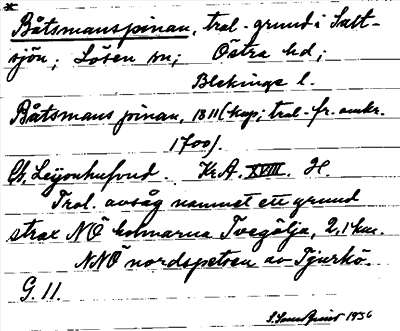 Båtsmanspinan, trol. grund i Salt-
sjön; Lösen sn; Östra hd;
Blekinge l.
Båtsmans pinan, 1811 (kop; trol. fr. omkr.
1700).
Ch. Leijonhufvud. KrA. XVIII. H.
Trol. avsåg namnet ett grund
strax NÖ holmarna Tvegölja, 2,1 km.
NNÖ nordspetsen av Tjurkö.
G. 11.
1936